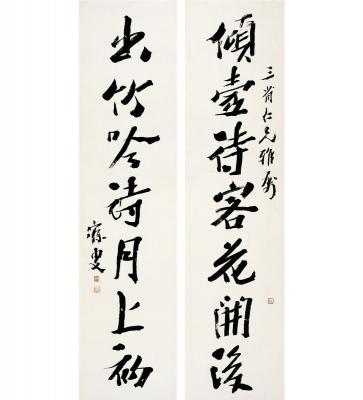 三省仁兄雅屬
傾壺待客花開後
出竹吟詩月上初
寐叟